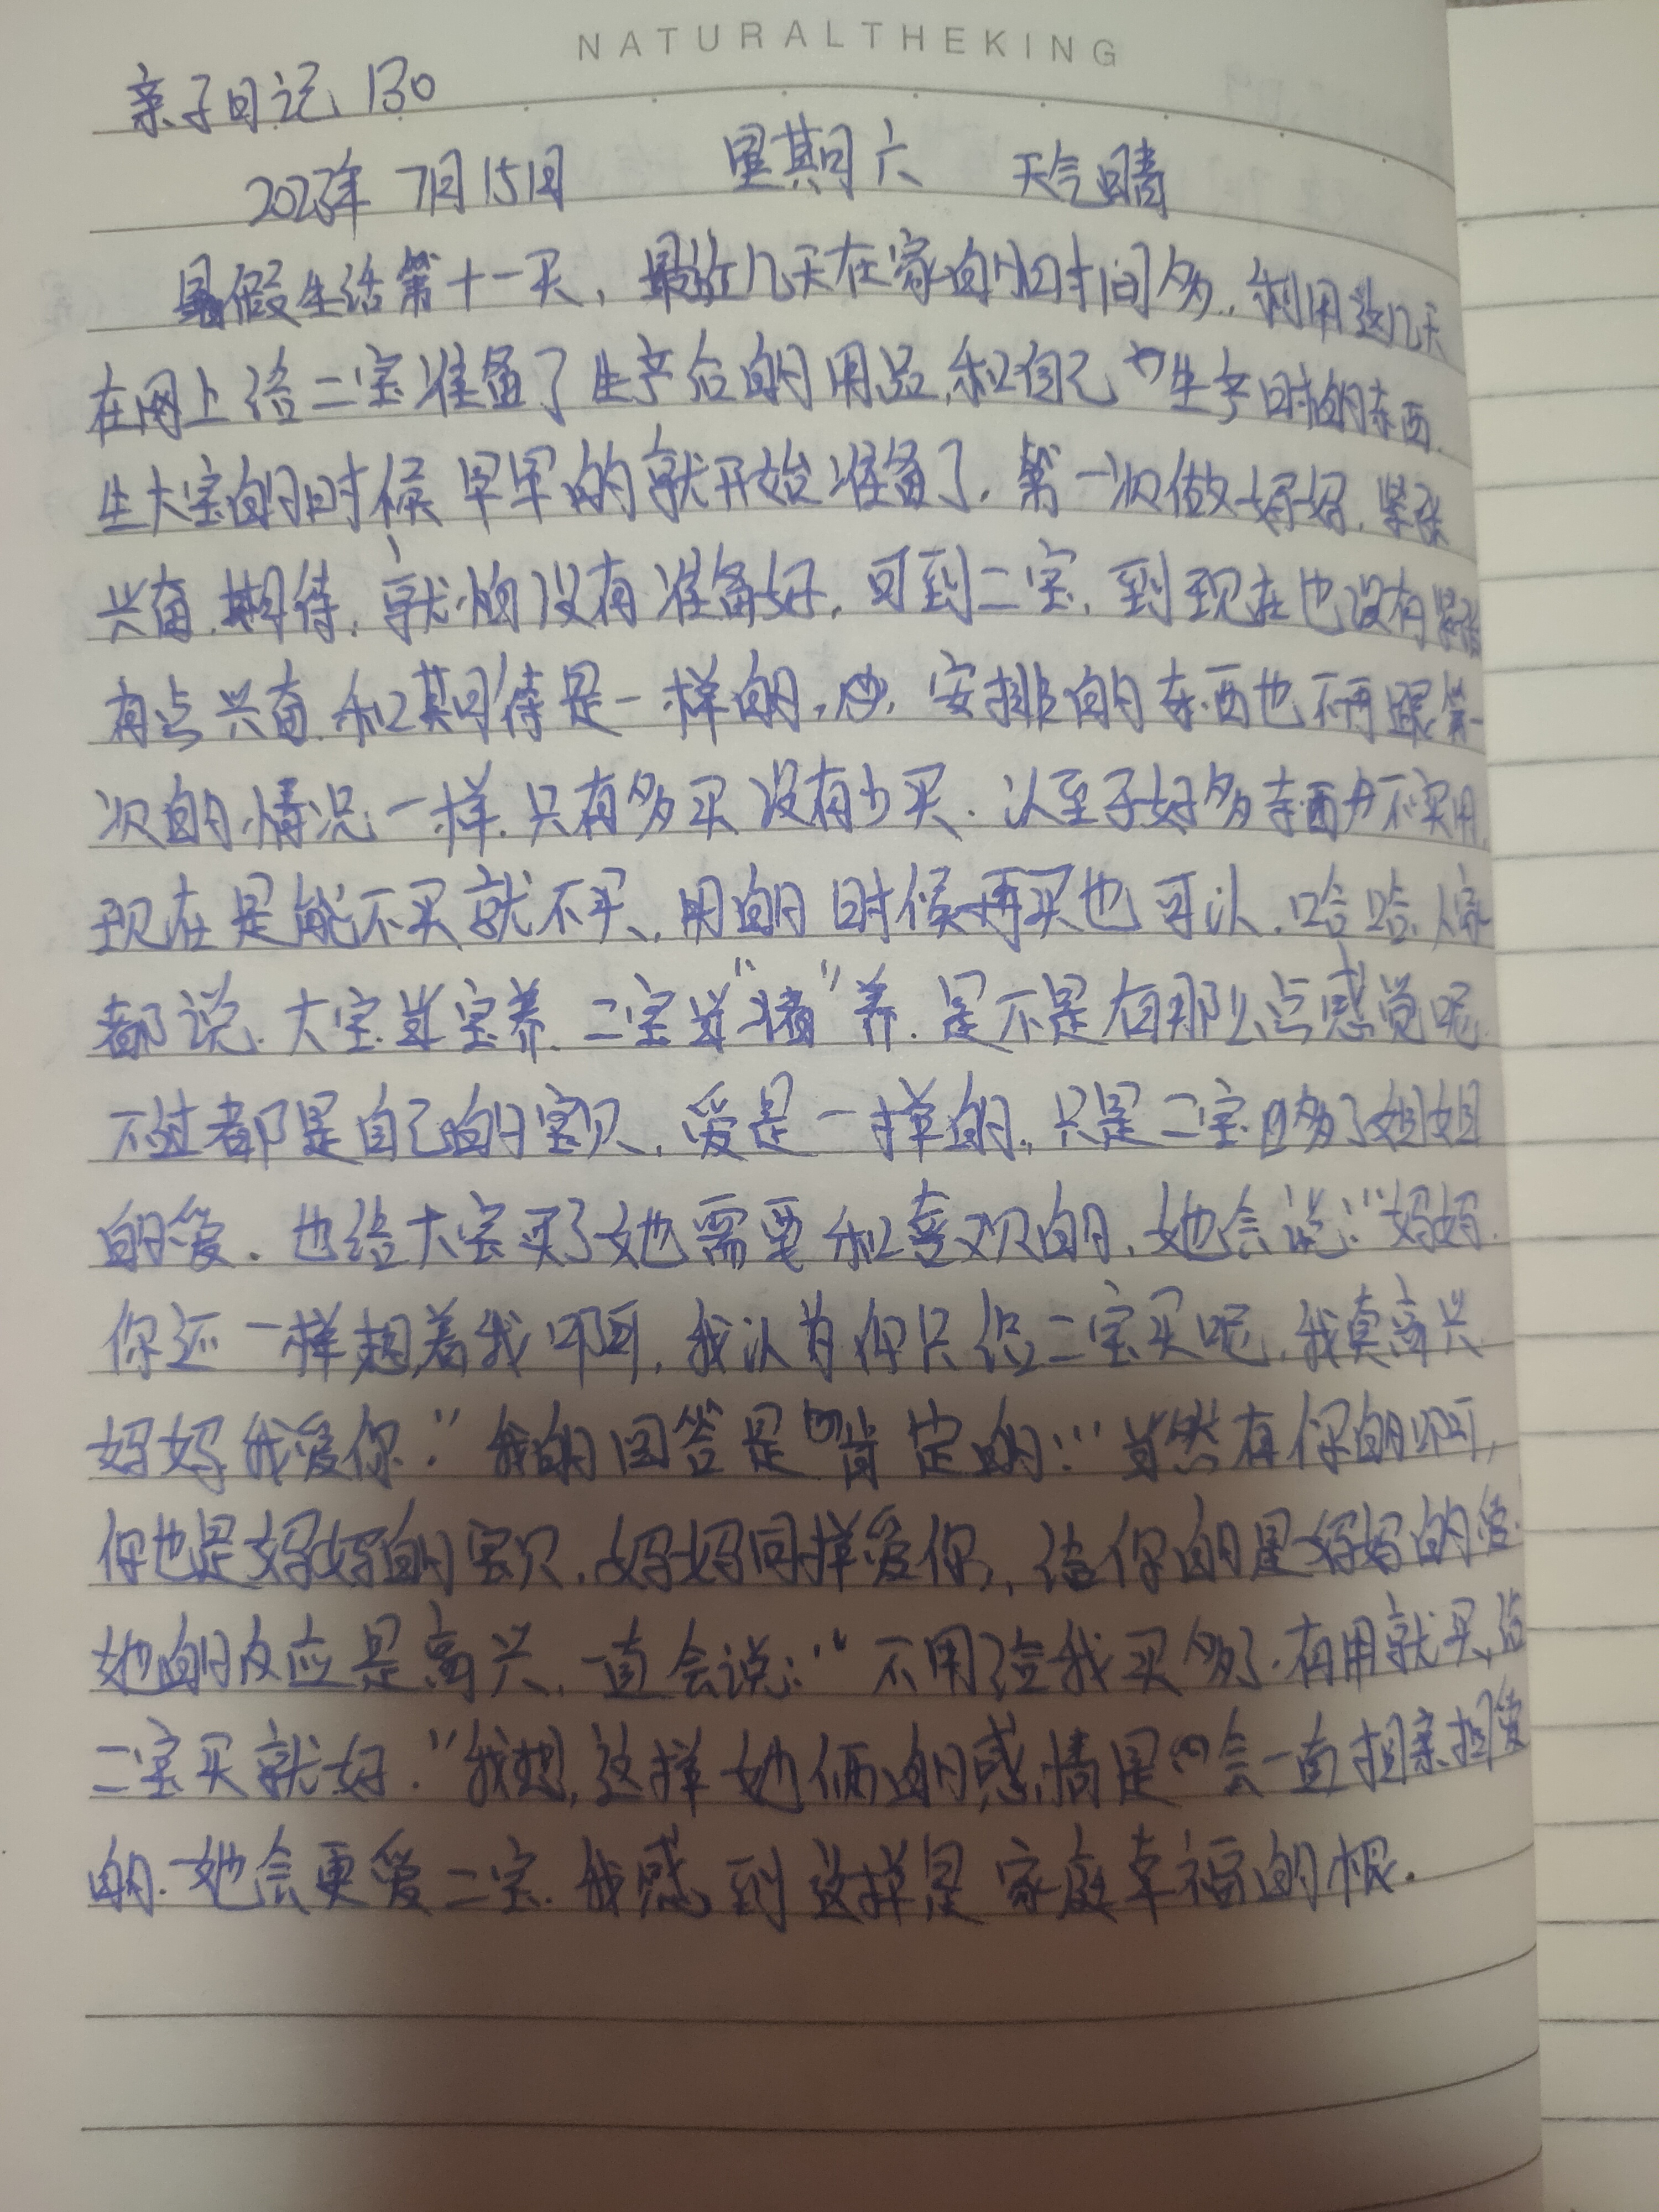 NATURALTHEKING
亲子日记 130
2023年 7月15日 星期六 天气晴
暑假生活第十一天，最近几天在家的时间多，利用这几天
在网上给二宝准备了生产后的用品，和自己生产时的东西.
生大宝的时候早早的就开始准备了，第一次做妈妈，紧张
兴奋，期待，就怕没有准备好，可到二宝，到现在也没有紧张
有点兴奋，和期待是一样的，安排的东西也不再跟第一
次的情况一样，只有多买没有少买，以至于好多东西才不实用，
现在是能不买就不买，用的时候再买也可以，哈哈，人家
都说，大宝当宝养，二宝当"猪"养，是不是有那么点感觉呢
不过都是自己的宝贝，爱是一样的，只是二宝多了姐姐
的爱．也给大宝买了她需要和喜欢的，她会说："妈妈，
你还一样想着我啊，我认为你只给二宝买呢，我真高兴
妈妈我爱你．"我的回答是肯定的："当然有你的啊，
你也是妈妈的宝贝，妈妈同样爱你，给你的是妈妈的爱．
她的反应是高兴，一直会说："不用给我买多了．有用就买，给
二宝买就好．"我想，这样她俩的感情是会一直相亲相爱
的．她会更爱二宝．我感到这样是家庭幸福的根．